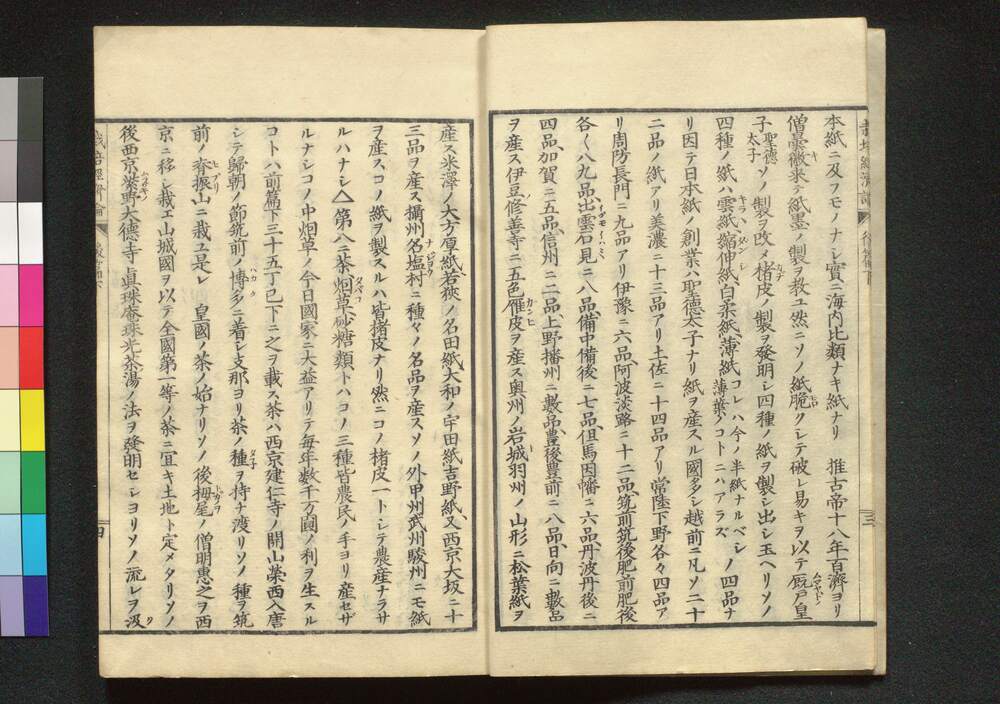 本紙ニ及フモノナシ實ニ海内比類ナキ紙ナリ　推古帝十八年百濟ヨリ
僧曇徴来テ紙墨ノ製ヲ教ユ然ニソノ紙脆クシテ破レ易キヲ以テ厩戸皇
子聖徳太子ソノ製ヲ改メ楮皮ノ製ヲ發明シ四種ノ紙ヲ製シ出シ玉ヘリソノ
四種ノ紙ハ雲紙縮伸紙白柔紙薄紙コレハ今ノ半紙ナルベシ薄葉ノコトニハアラズノ四品ナ
リ因テ日本紙ノ創業ハ聖徳太子ナリ紙ヲ産スル國多シ越前ニ凡ソ二十
二品ノ紙アリ美濃ニ十三品アリ土佐ニ十四品アリ常陸下野各々四品ア
リ周防長門ニ九品アリ伊豫ニ六品阿波淡路ニ十二品筑前筑後肥前肥後
各〱八九品出雲石見ニ八品備中備後ニ七品但馬因幡ニ六品丹波丹後ニ
四品加賀ニ五品信州ニ二品上野播州ニ數品豊後豊前ニ八品日向ニ數品
ヲ産ス伊豆修善寺ニ五色雁皮ヲ産ス奥州ノ岩城羽州ノ山形ニ松葉紙ヲ
産ス米澤ノ大方厚紙若狹ノ名田紙大和ノ宇田紙吉野紙又西京大坂ニ十
三品ヲ産ス攝州名塩村ニ種々ノ名品ヲ産スソノ外甲州武州駿州ニモ紙
ヲ産スコノ紙ヲ製スルハ皆楮皮ナリ然ニコノ楮皮一トシテ農産ナラサ
ルハナシ△第八ニ茶烟草砂糖類トハコノ三種皆農民ノ手ヨリ産セザ
ルナシコノ中烟草ノ今日國家ニ大益アリテ毎年数千万圓ノ利ヲ生スル
コトハ前篇下三十五丁已下ニ之ヲ載ス茶ハ西京建仁寺ノ開山榮西入唐
シテ歸朝ノ節筑前ノ博多ニ着シ支那ヨリ茶ノ種ヲ持チ渡リソノ種ヲ筑
前ノ脊振山ニ栽ユ是レ　皇國ノ茶ノ始ナリソノ後栂尾ノ僧明惠之ヲ西
京ニ移シ栽エ山城國ヲ以テ全國第一等ノ茶ニ宜キ土地ト定メタリソノ
後西京紫野大德寺眞珠庵珠光茶湯ノ法ヲ發明セシヨリソノ流レヲ汲